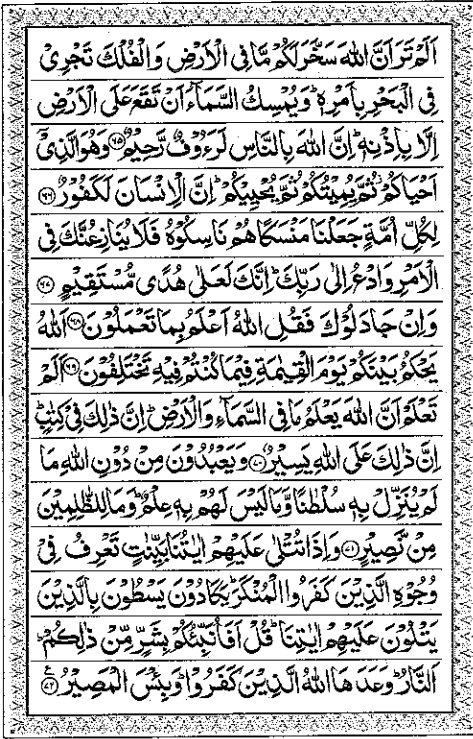 اَلَمْ تَرَ اَنَّ اللّٰهَ سَخَّرَ لَكُمْ مَّا فِی الْاَرْضِ وَ الْفُلْكَ تَجْرِیْ
فِی الْبَحْرِ بِاَمْرِهٖ ؕ وَ یُمْسِكُ السَّمَآءَ اَنْ تَقَعَ عَلَی الْاَرْضِ
اِلَّا بِاِذْنِهٖ ؕ اِنَّ اللّٰهَ بِالنَّاسِ لَرَءُوْفٌ رَّحِیْمٌ ﴿۶۵﴾ وَ هُوَ الَّذِیْۤ
اَحْیَاكُمْ ؗ ثُمَّ یُمِیْتُكُمْ ثُمَّ یُحْیِیْكُمْ ؕ اِنَّ الْاِنْسَانَ لَكَفُوْرٌ ﴿۶۶﴾
لِكُلِّ اُمَّةٍ جَعَلْنَا مَنْسَكًا هُمْ نَاسِكُوْهُ فَلَا یُنَازِعُنَّكَ فِی
الْاَمْرِ وَ ادْعُ اِلٰی رَبِّكَ ؕ اِنَّكَ لَعَلٰی هُدًی مُّسْتَقِیْمٍ ﴿۶۷﴾
وَ اِنْ جٰدَلُوْكَ فَقُلِ اللّٰهُ اَعْلَمُ بِمَا تَعْمَلُوْنَ ﴿۶۸﴾ اَللّٰهُ
یَحْكُمُ بَیْنَكُمْ یَوْمَ الْقِیٰمَةِ فِیْمَا كُنْتُمْ فِیْهِ تَخْتَلِفُوْنَ ﴿۶۹﴾ اَلَمْ
تَعْلَمْ اَنَّ اللّٰهَ یَعْلَمُ مَا فِی السَّمَآءِ وَ الْاَرْضِ ؕ اِنَّ ذٰلِكَ فِیْ كِتٰبٍ ؕ
اِنَّ ذٰلِكَ عَلَی اللّٰهِ یَسِیْرٌ ﴿۷۰﴾ وَ یَعْبُدُوْنَ مِنْ دُوْنِ اللّٰهِ مَا
لَمْ یُنَزِّلْ بِهٖ سُلْطٰنًا وَّ مَا لَیْسَ لَهُمْ بِهٖ عِلْمٌ ؕ وَ مَا لِلظّٰلِمِیْنَ
مِنْ نَّصِیْرٍ ﴿۷۱﴾ وَ اِذَا تُتْلٰی عَلَیْهِمْ اٰیٰتُنَا بَیِّنٰتٍ تَعْرِفُ فِیْ
وُجُوْهِ الَّذِیْنَ كَفَرُوا الْمُنْكَرَ ؕ یَكَادُوْنَ یَسْطُوْنَ بِالَّذِیْنَ
یَتْلُوْنَ عَلَیْهِمْ اٰیٰتِنَا ؕ قُلْ اَفَاُنَبِّئُكُمْ بِشَرٍّ مِّنْ ذٰلِكُمْ ؕ
اَلنَّارُ ؕ وَعَدَهَا اللّٰهُ الَّذِیْنَ كَفَرُوْا ؕ وَ بِئْسَ الْمَصِیْرُ ﴿۷۲﴾ ع